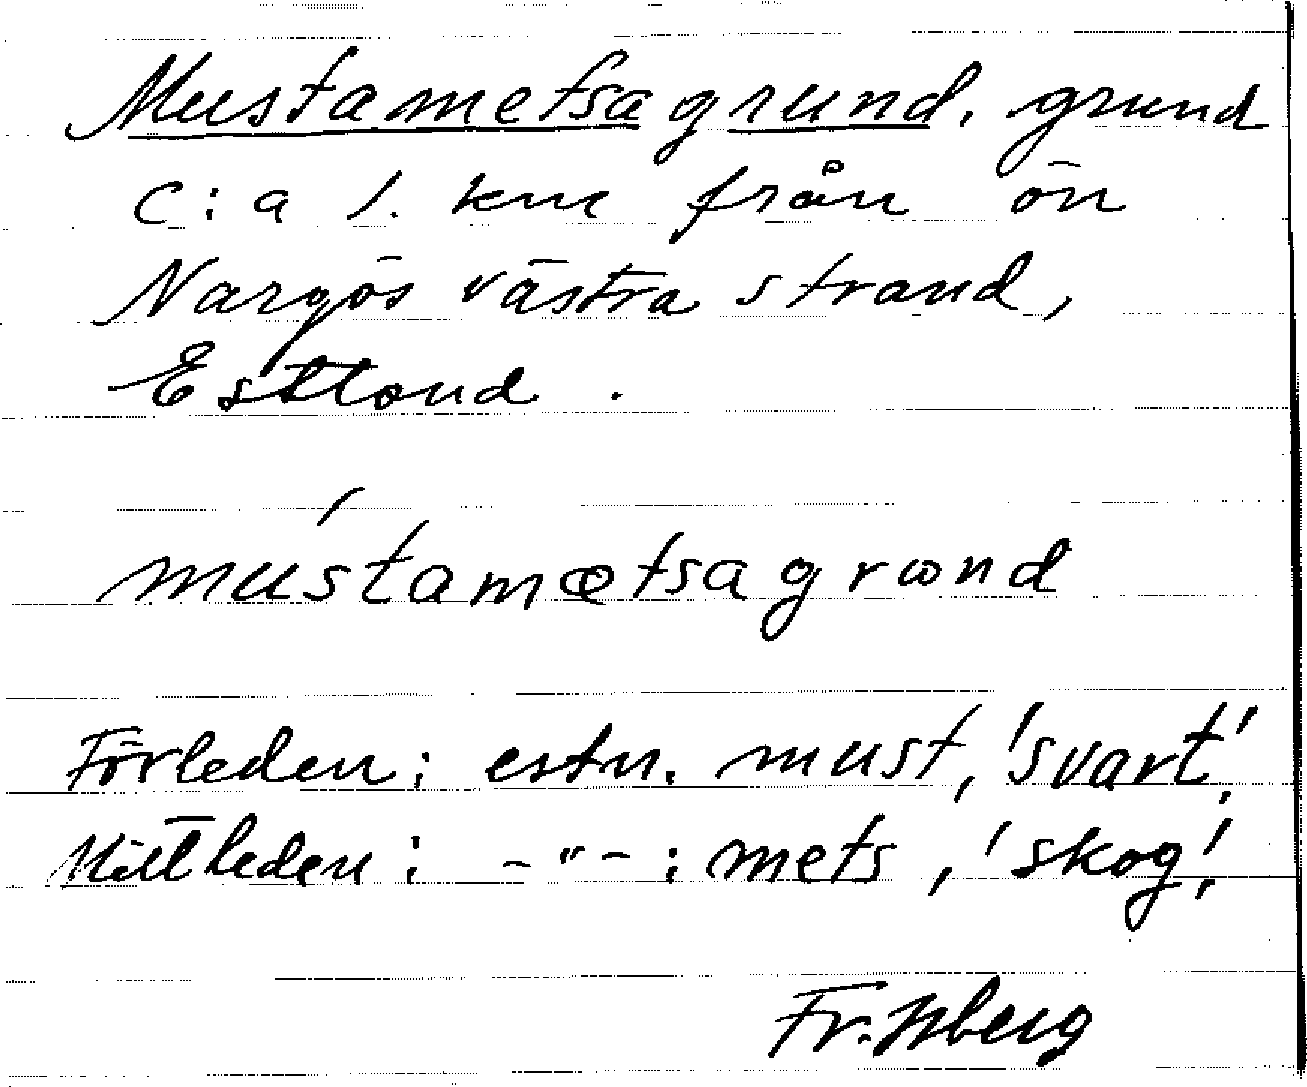 Mustametsagrund, grund
c:a 1. km från ön
Nargös västra strand,
Estland.
mústamætsagrωnd
Förleden: estn. must, 'svart',
Mittleden: -"-: mets, 'skog',
Fr.